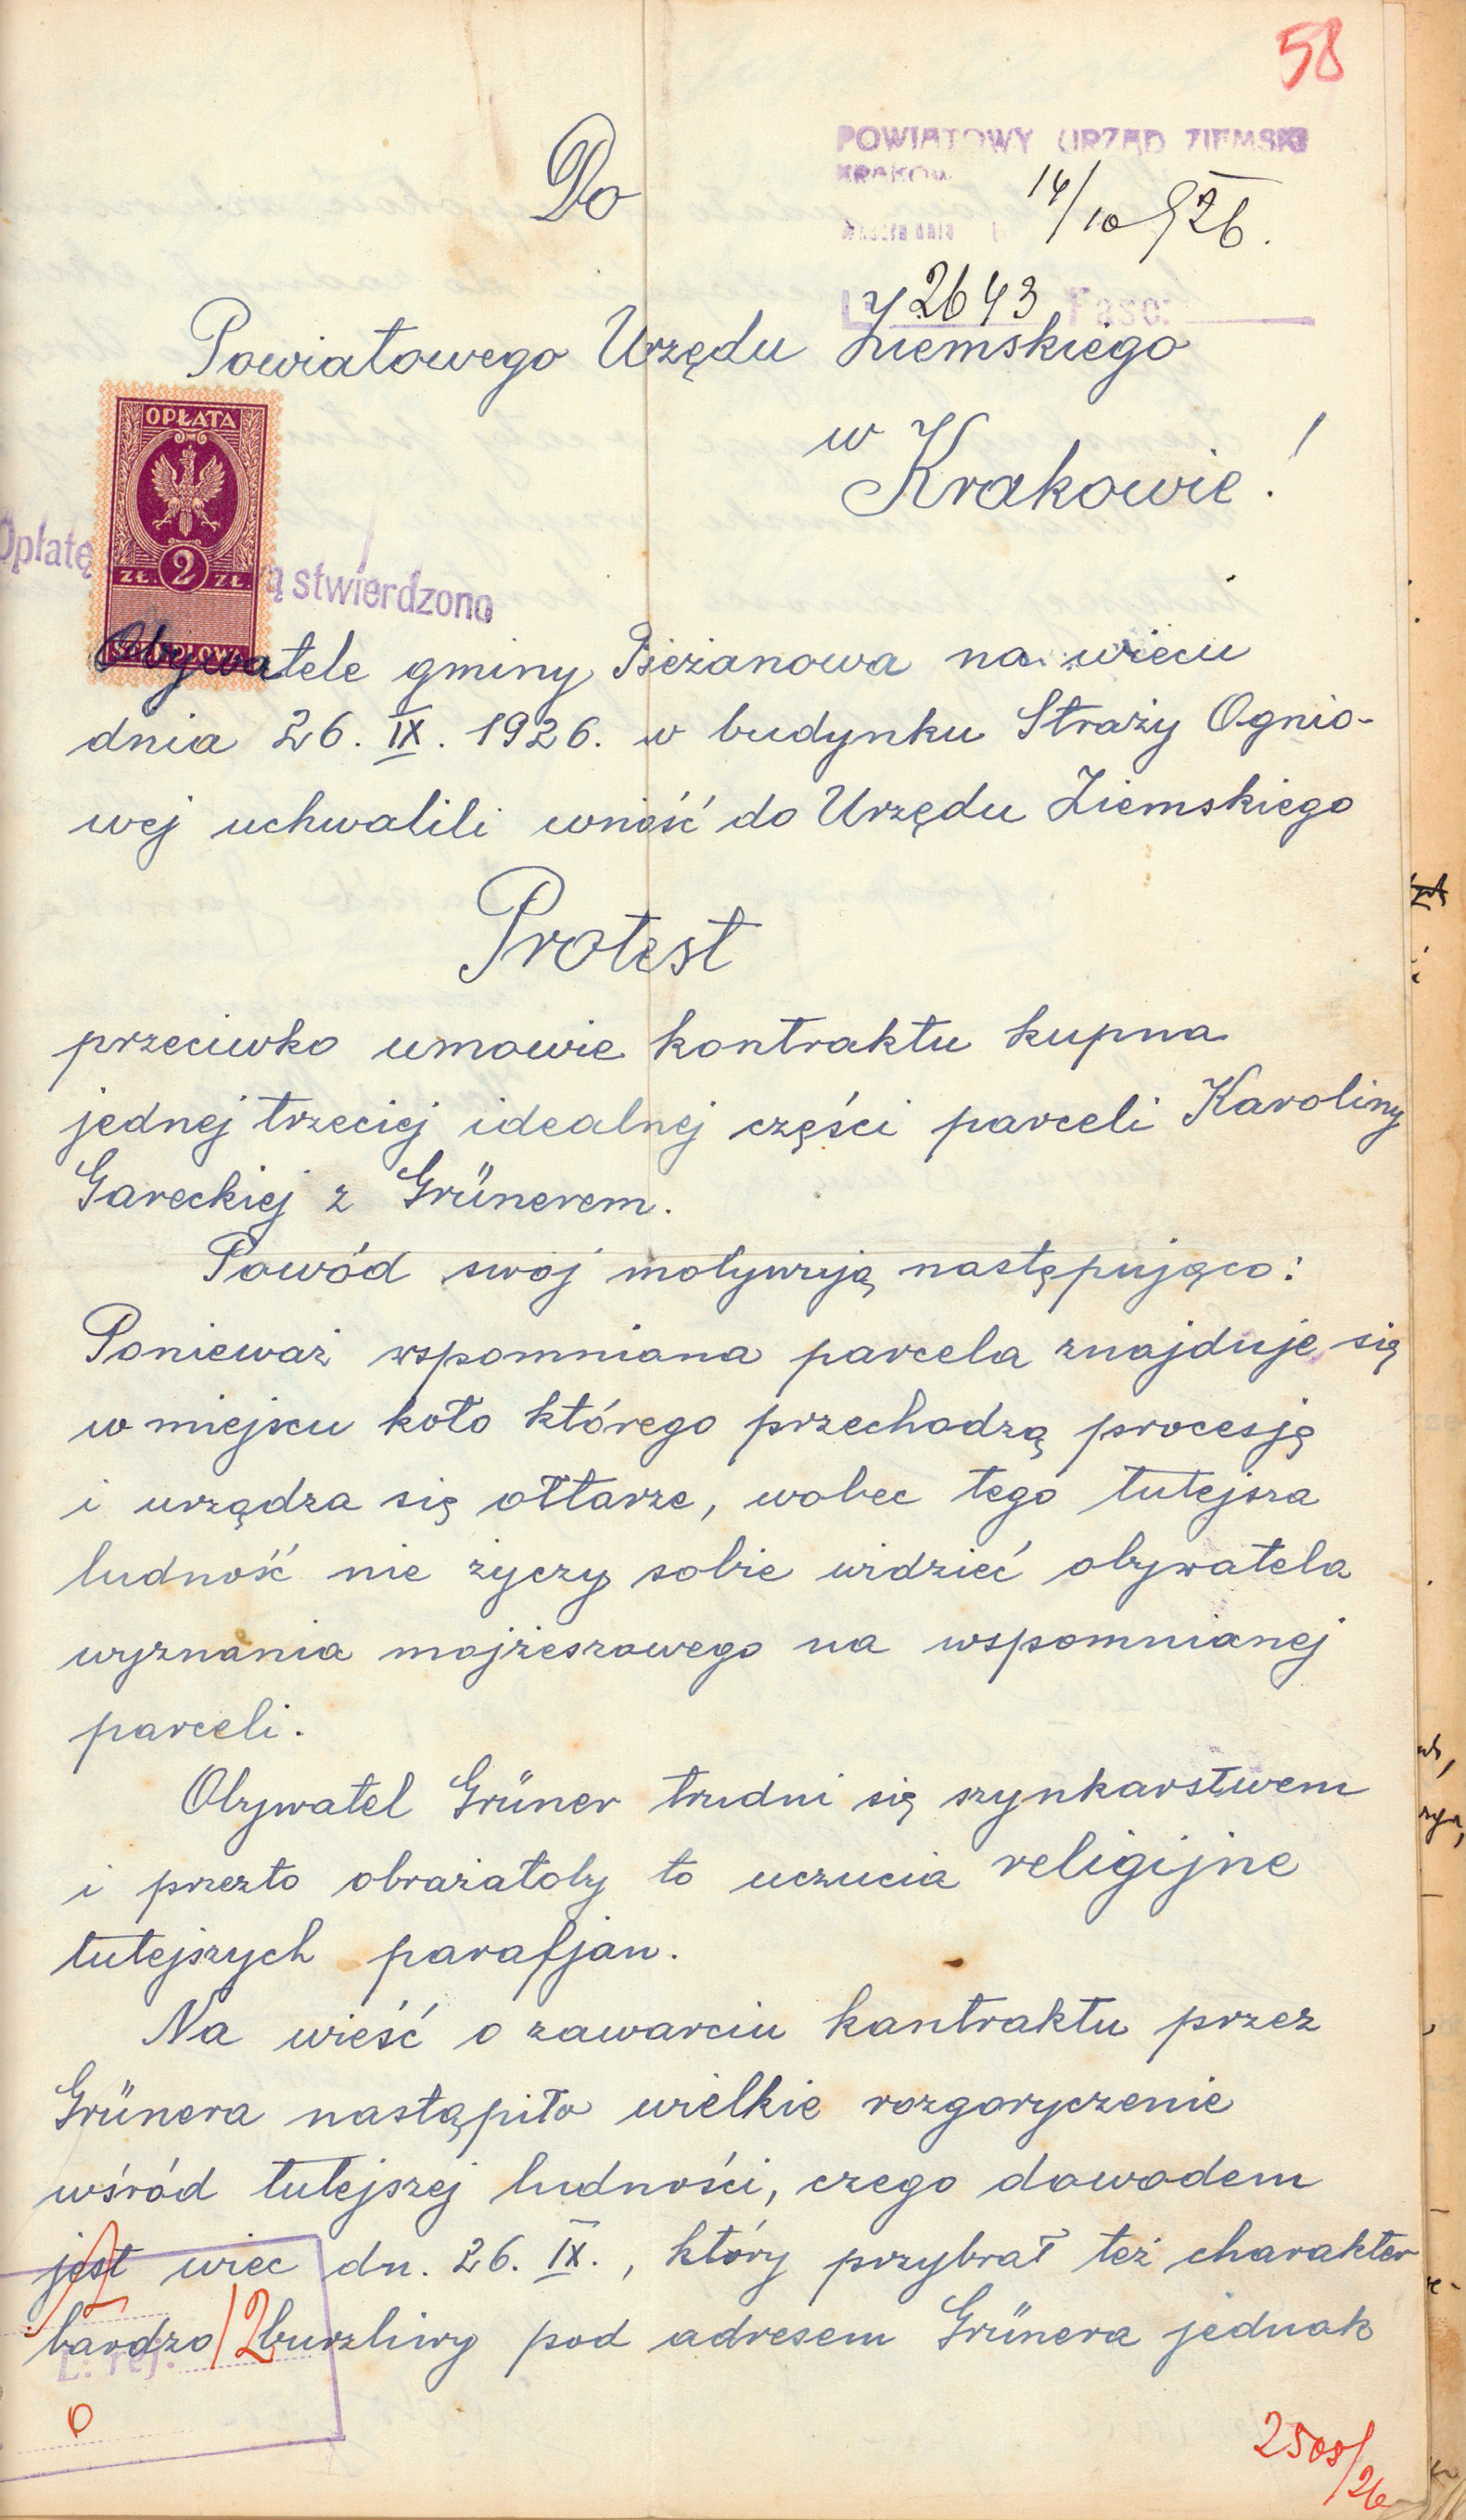 58
POWIATOWY URZĄD ZIEMSKI
KRAKÓW
14/10 926.
L 2643 Fasc:
Do
Powiatowego Urzędu Ziemskiego
w
Krakowie!
OPŁATA
ZŁ. 2 ZŁ.
STEMPLOWA
Opłatę
ą stwierdzono
Obywatele gminy Bieżanowa na wiecu
dnia 26. IX. 1926. w budynku Straży Ognio-
wej uchwalili wnieść do Urzędu Ziemskiego
Protest
przeciwko umowie kontraktu kupna
jednej trzeciej idealnej części parceli Karoliny
Gareckiej z Grünerem.
Powód swój motywują następująco:
Ponieważ wspomniana parcela znajduje się
w miejscu koło którego przechodzą procesję
i urządza się ołtarze, wobec tego tutejsza
ludność nie życzy sobie widzieć obywatela
wyznania mojżeszowego na wspomnianej
parceli.
Obywatel Grüner trudni się szynkarstwem
i przezto obrażałoby to uczucia religijne
tutejszych parafjan.
Na wieść o zawarciu kontraktu przez
Grünera nastąpiło wielkie rozgoryczenie
wśród tutejszej ludności, czego dowodem
jest wiec dn. 26. IX., który przybrał też charakter
bardzo burzliwy pod adresem Grünera jednak
L. rej.
12
0
2508/26